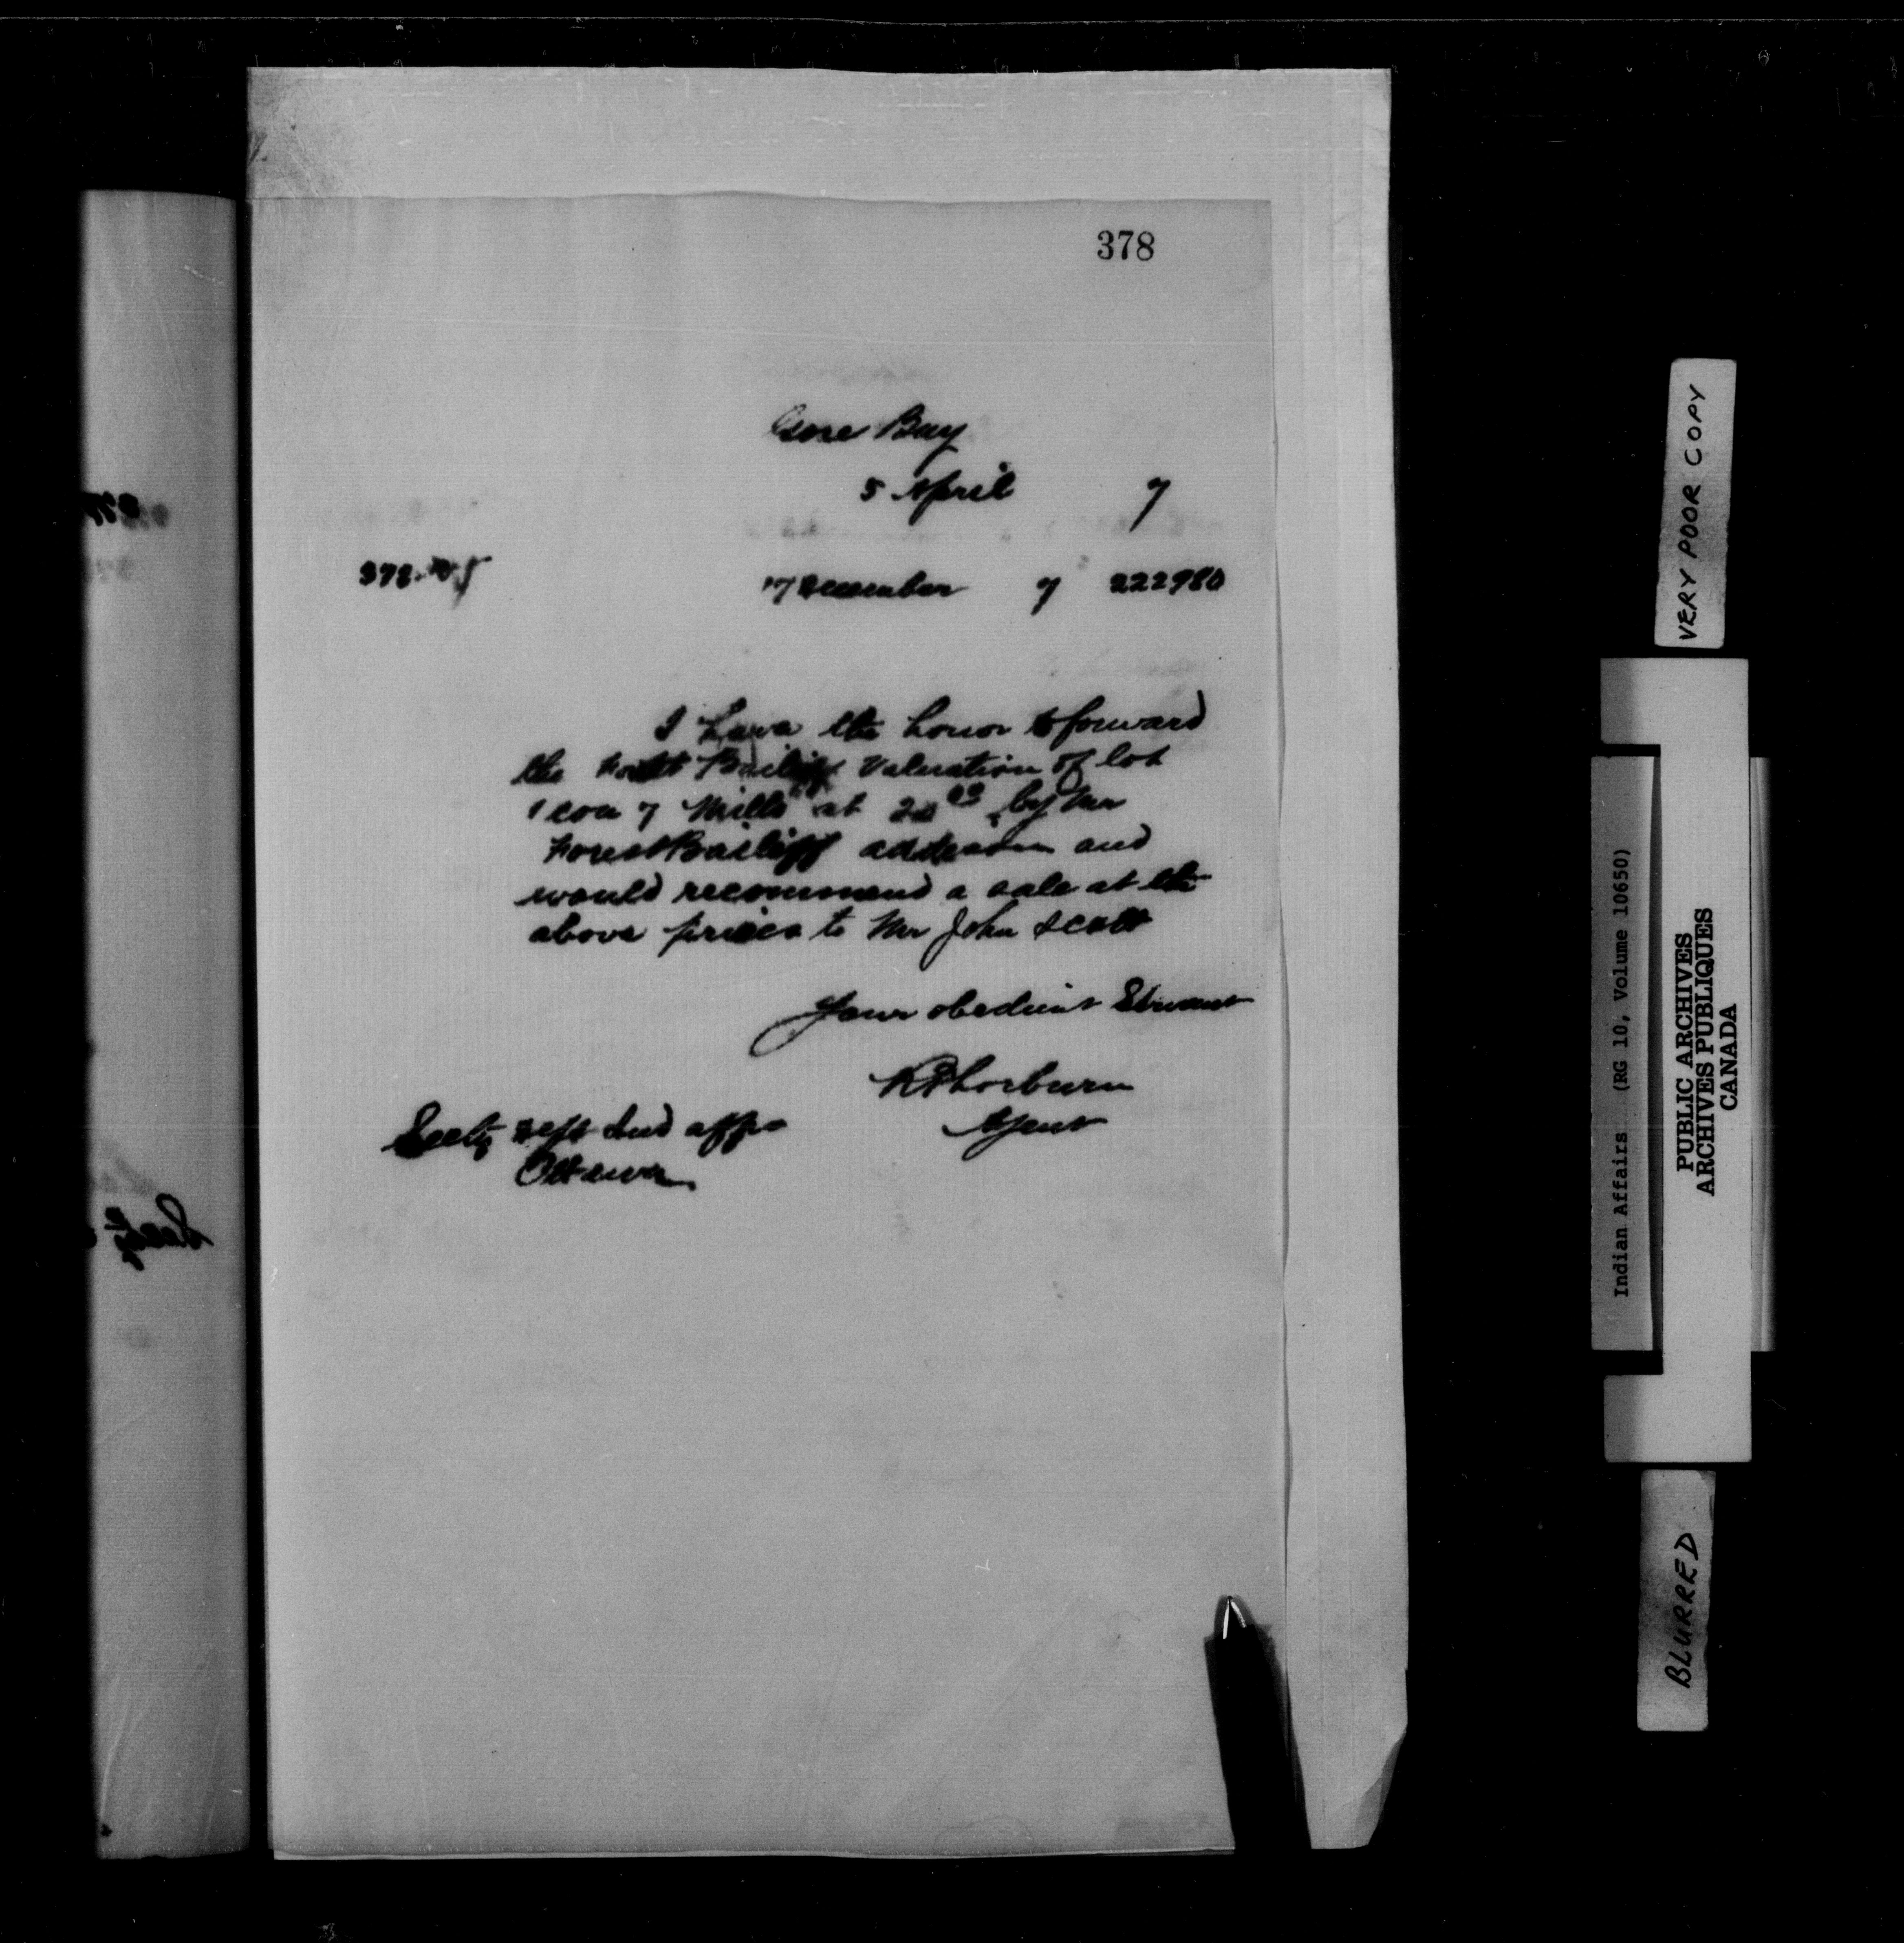 378
Gore Bay
5 April 7
378
17 December 7 222980
I have the honor to forward
the Bailiff Valuation of lot
1 con 7 Mills at by Mr
Forest Bailiff and
would recommend a sale at the
above prices to Mr John Scott
Your obedient Servant
R Thorburn
Agent
Secty Dept Ind affrs
Ottawa
VERY POOR COPY
Indian Affairs (RG 10, Volume 10650)
PUBLIC ARCHIVES
ARCHIVES PUBLIQUES
CANADA
BLURRED